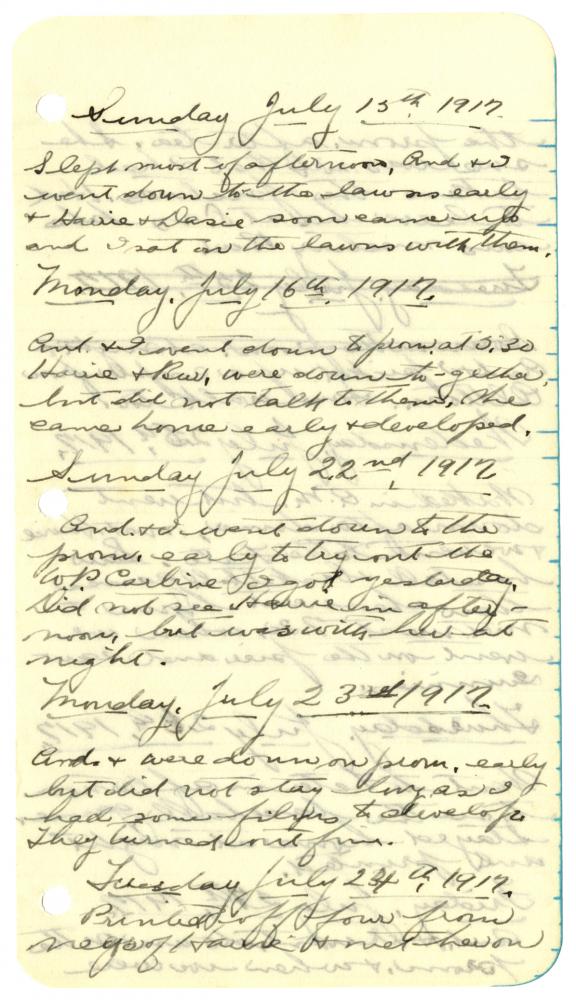 Sunday July 15th 1917.
Slept most of afternoon, And & I
went down to the lawns early
& Harrie & Dasie soon came up
and I sat on the lawns with them.
Monday, July 16th, 1917.
And. & I went down to prom. at 5.30
Harrie & were down to-gether,
but did not talk to them. We
came home early & developed.
Sunday July 22nd, 1917
And. & I went down to the
prom. early to try out the
W P Carbine I got yesterday.
Did not see Harrie in after-
noon, but was with her at
night.
Monday, July 23rd 1917.
And. & were down on prom. early
but did not stay long as I
had some films to develop.
They turned out fine.
Tuesday July 24th, 1917.
Printed off four from
negs of Harrie & met her on